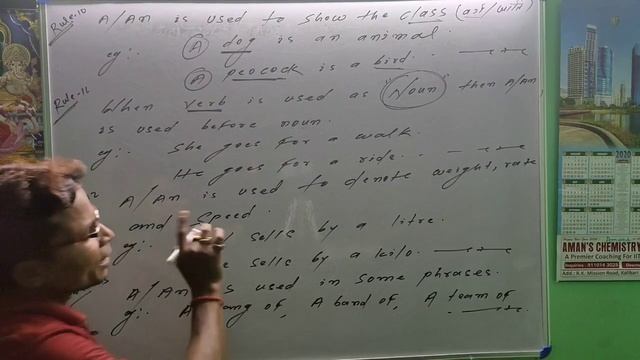 Rule-10
A/An is used to show the class
eg:- A dog is an animal.
A peocock is a bird.
Rule-11
When verb is used as "Noun" then A/An
is used before noun.
eg:- She goes for a walk.
He goes for a ride.
A/An is used to denote weight, rate
and speed.
eg:- sells by a litre.
sells by a kilo.
A/An is used in some phrases.
eg:- A gang of, A band of, A team of
2020
AMAN'S CHEMISTRY
A Premier Coaching For IIT
Add.: R.K. Mission Road,